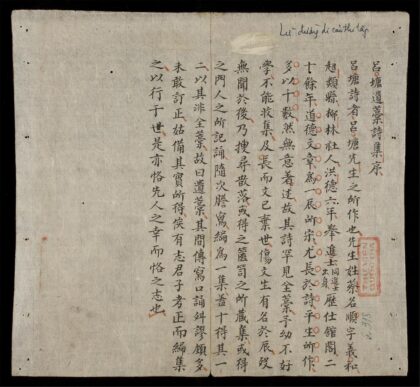 Lữ đường di cảo thi tập
呂塘遺藁詩集序
呂塘詩者呂塘先生之所作也先生姓蔡名順字義和
超類縣柳林社人洪德六年舉進士同進士出身歷仕館閣二
十餘年道德文章為一辰所宗尤長於詩平生所作
多以十數然無意著述故其詩罕見全藁予幼不好
學不能裒集及長而文已棄世傷文生有名於辰歿
無聞於後乃搜尋散落或得之箧笥之所藏集或得
之門人之所記誦隨次謄寫編為一集首十得其一
二以其非全藁故曰遺藁其間傳寫口誦糾謬頗多
未敢訂正姑備其實所得俟有志君子考正而編集
之以行于世是亦恪先人之幸而恪之志也